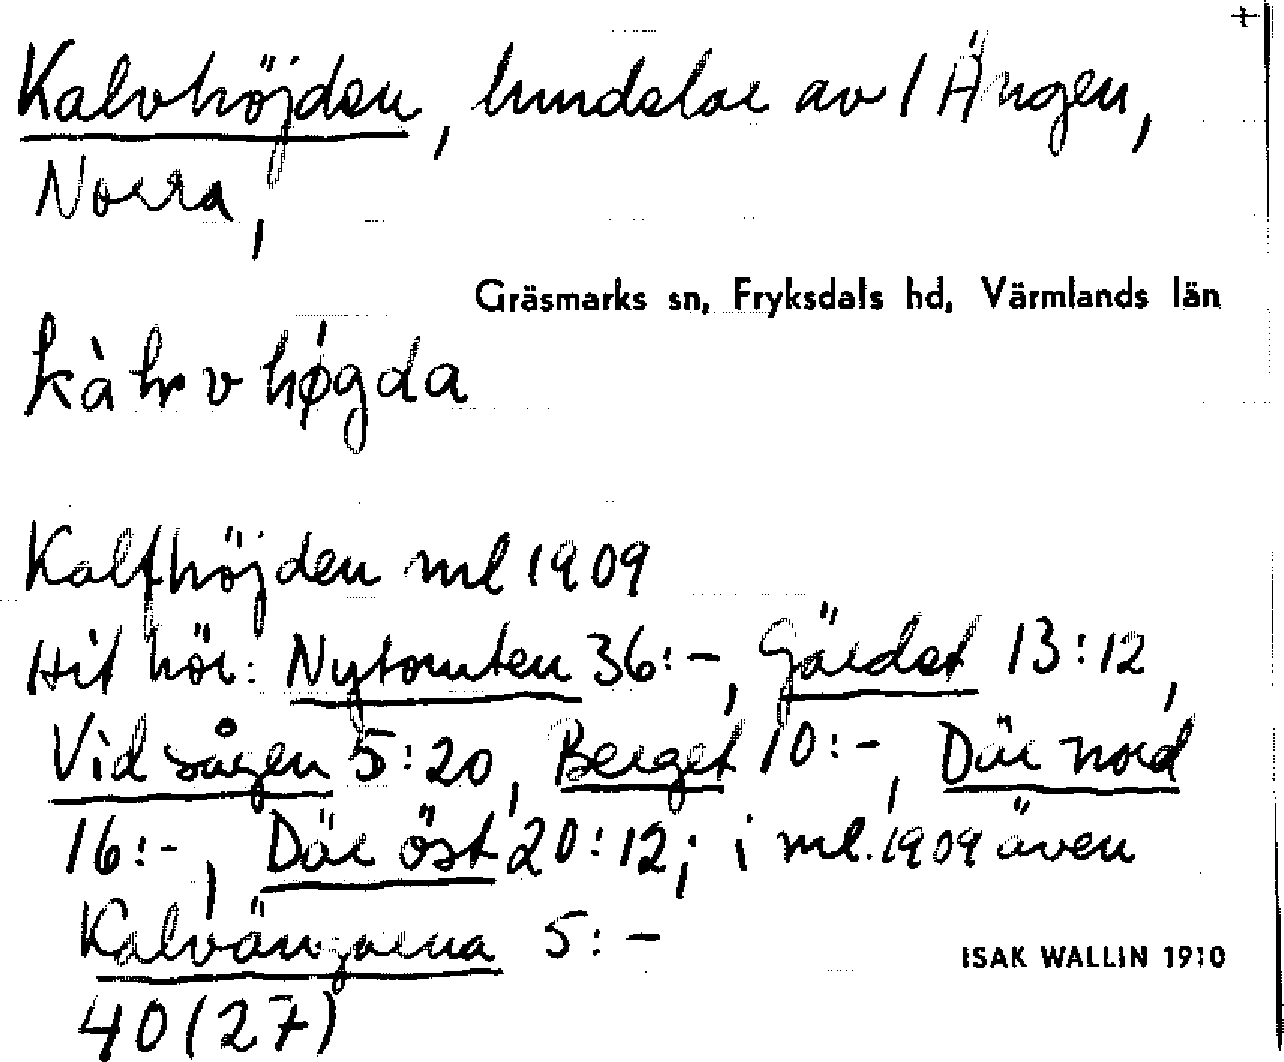 Kalvhöjden, hmdelar av 1 Ängen,
Norra,
Gräsmarks sn, Fryksdals hd, Värmlands län
høgda
Kalfhöjden ml 1909
Hit hör: Nytomten 36:-, Gärdet 13:12,
Vid sågen 5:20, Berget 10:-, Där nord
16:-, Där öst 20:12; i ml. 1909 även
Kalvängarna 5:-
ISAK WALLIN 1910
40(27)